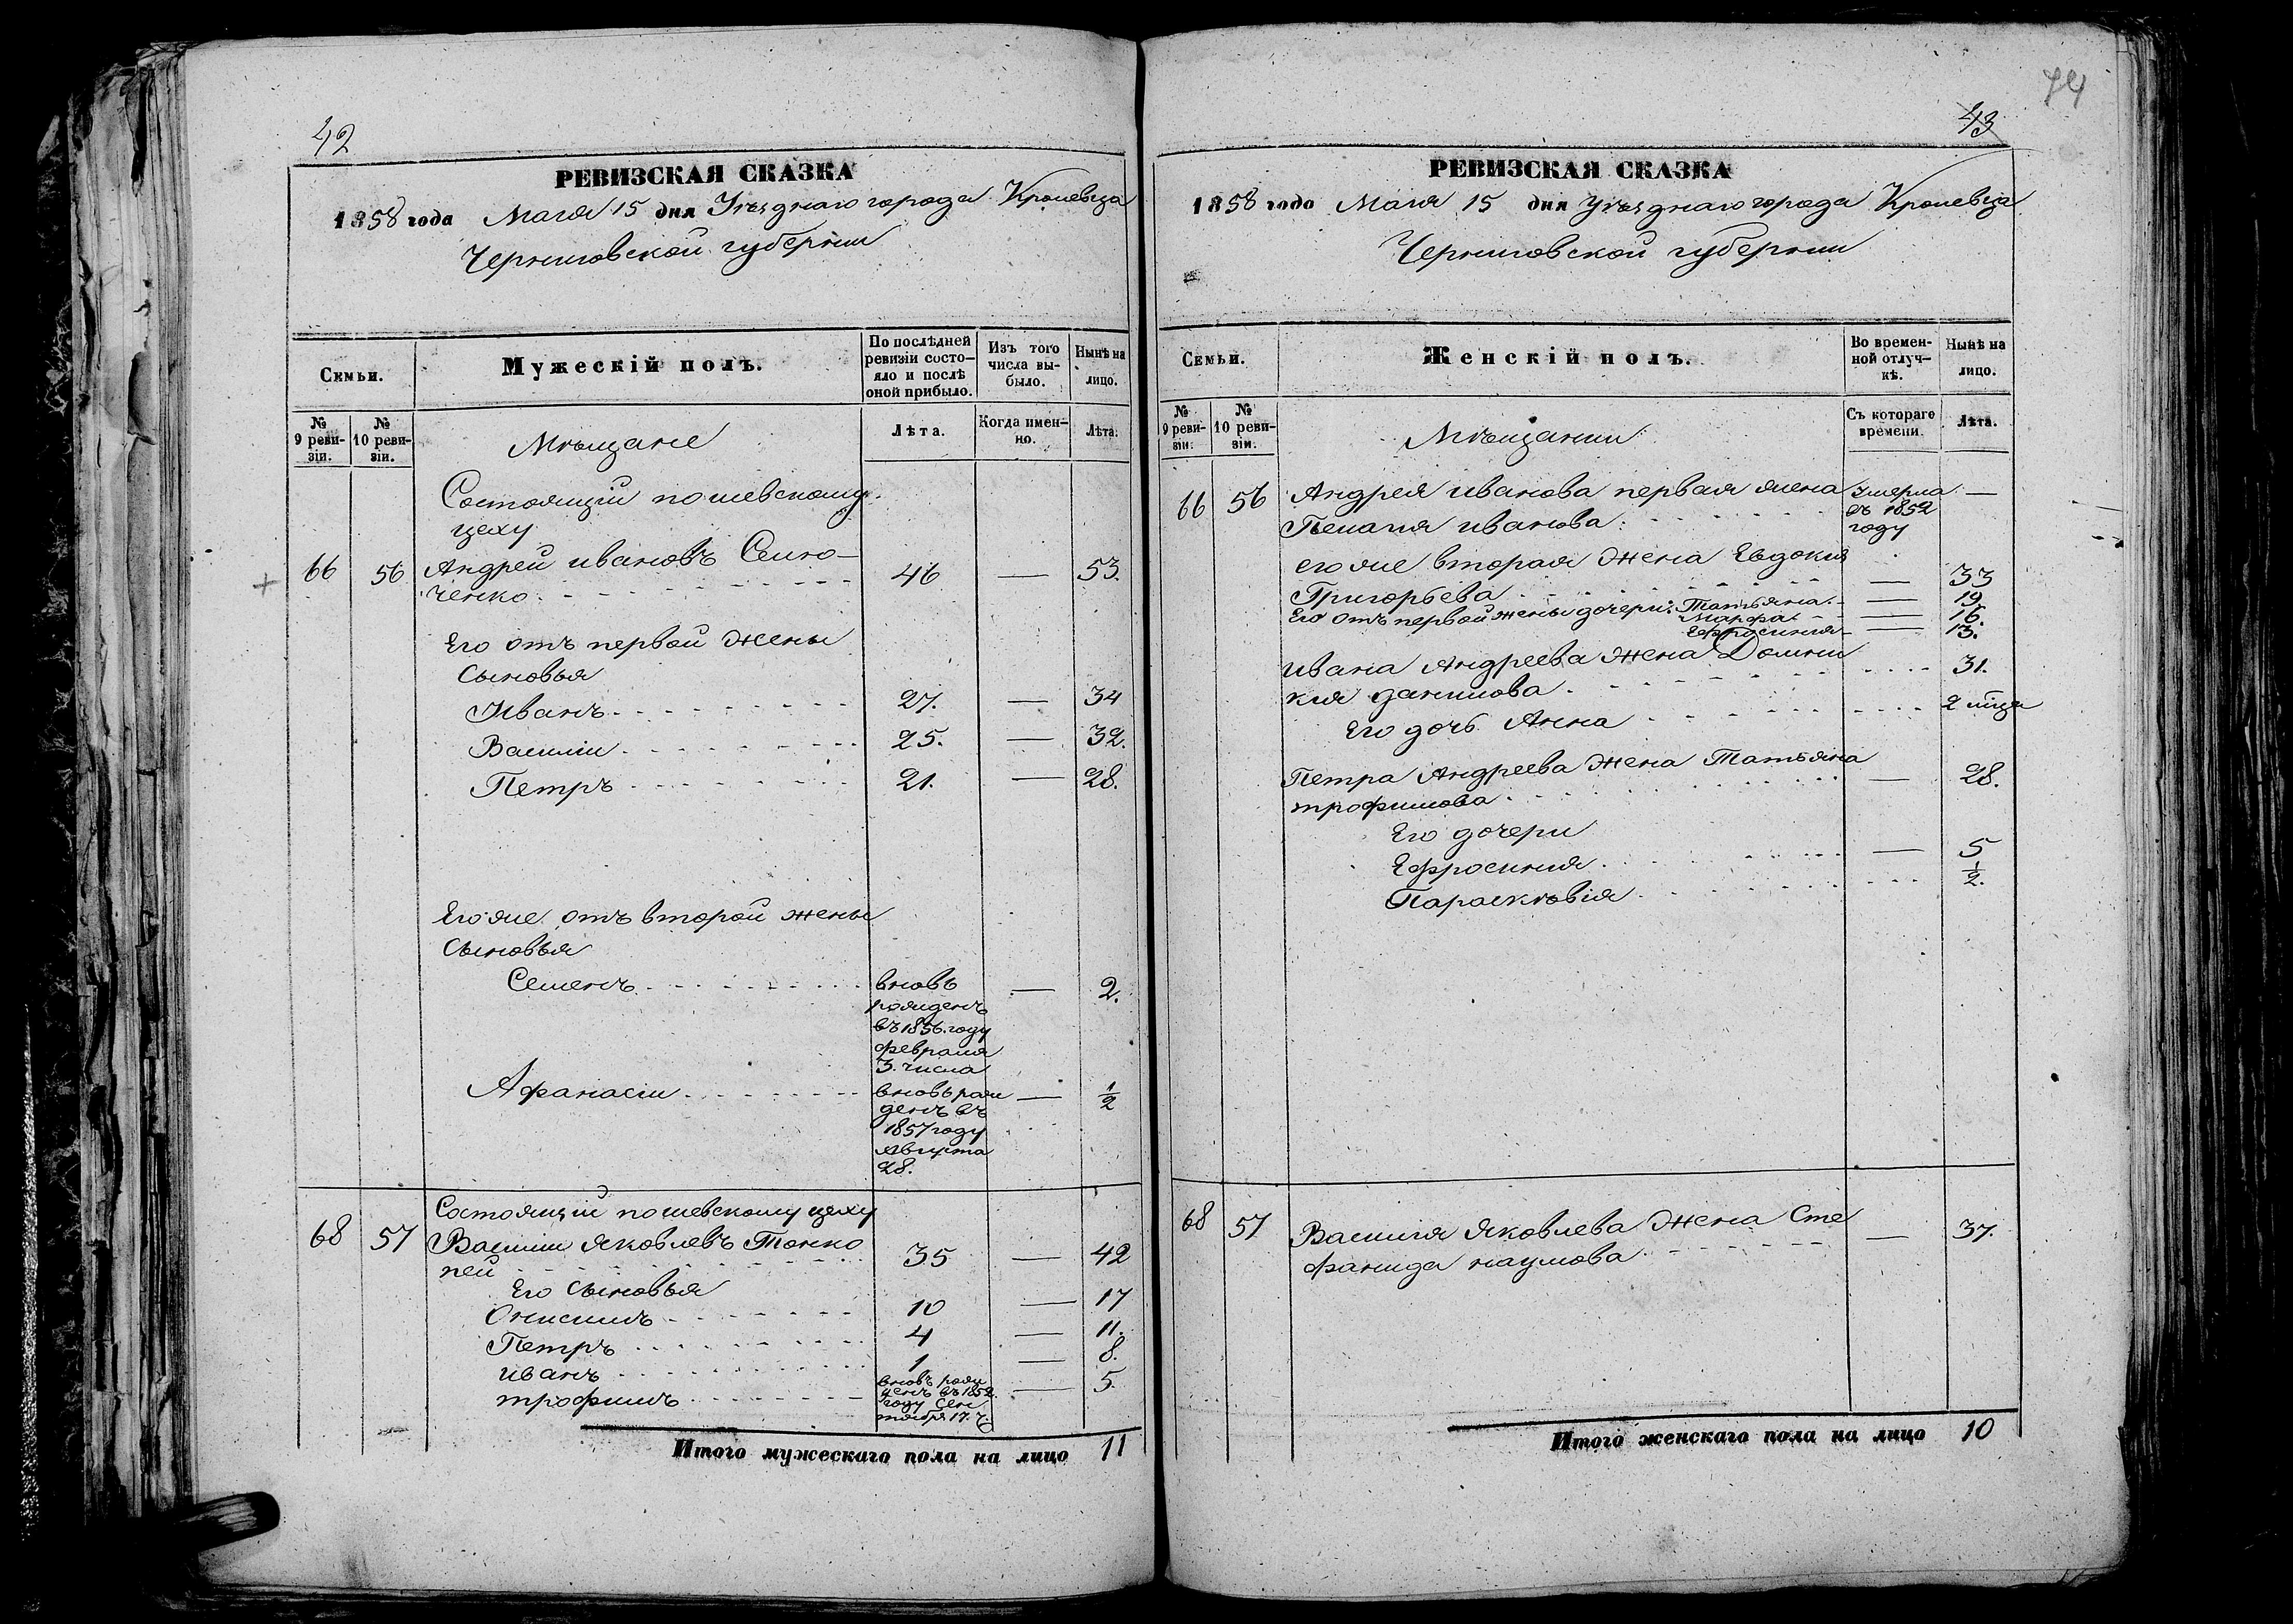 42
РЕВИЗСКАЯ СКАЗКА
1858 года Мая 15 дня Уѣзднаго города Кролевца
Черниговской губерніи
Семьи.
Мужескій полъ.
По послѣдней ревизіи состояло и послѣ оной прибыло.
Изъ того числа выбыло.
Нынѣ на лицо.
№ 9 ревизіи.
№ 10 ревизіи.
Мѣщане
Лѣта.
Когда именно.
Лѣта.
Состоящій по шевскому
цеху
66 56 Андрей ивановъ Семю-
ченко 46 — 53.
Его отъ первой жены
Сыновья
Иванъ 27. — 34
Василій 25. — 32.
Петръ 21. — 28.
Его же отъ второй жены
Сыновья
Семенъ — 2.
вновь
рожденъ
въ 1856. году
февраля
3. числа
Афанасій — 1/2
вновь рож
денъ въ
1857 году
Августа
28.
Состоящій по шевскому цеху
68 57 Василій Яковлевъ Тонко
пей 35 — 42
Его Сыновья
Онисимъ 10 — 17
Петръ 4 — 11.
иванъ 1 — 8.
трофимъ — 5.
вновь рож
денъ въ 1852
году Сен
тября 17. ч.
Итого мужескаго пола на лицо 11
74
43
РЕВИЗСКАЯ СКАЗКА
1858 годо Мая 15 дня Уѣзднаго города Кролевца
Черниговской губерніи
Семьи.
Женскій полъ.
Во временной отлучкѣ.
Нынѣ на лицо.
№ 9 ревизіи.
№ 10 ревизіи.
Мѣщанки
Съ котораго времени.
Лѣта.
66 56 Андрея иванова первая жена
Пелагія иванова
Умерла —
въ 1852
году
его же вторая жена Евдокия
Григорьева — 33
Его отъ первой жены дочери: Татьяна — 19
Марфа — 16.
Ефросинія — 13.
ивана Андреева жена Домни
кия данилова 31.
Его дочь Анна 2 мѣца
Петра Андреева жена Татьяна
трофимова — 28.
Его дочери
Ефросиния — 5
Парасковія 1/2.
68 57 Василия Яковлева жена Сте
фанида наумова — 37.
Итого женскаго пола на лицо 10